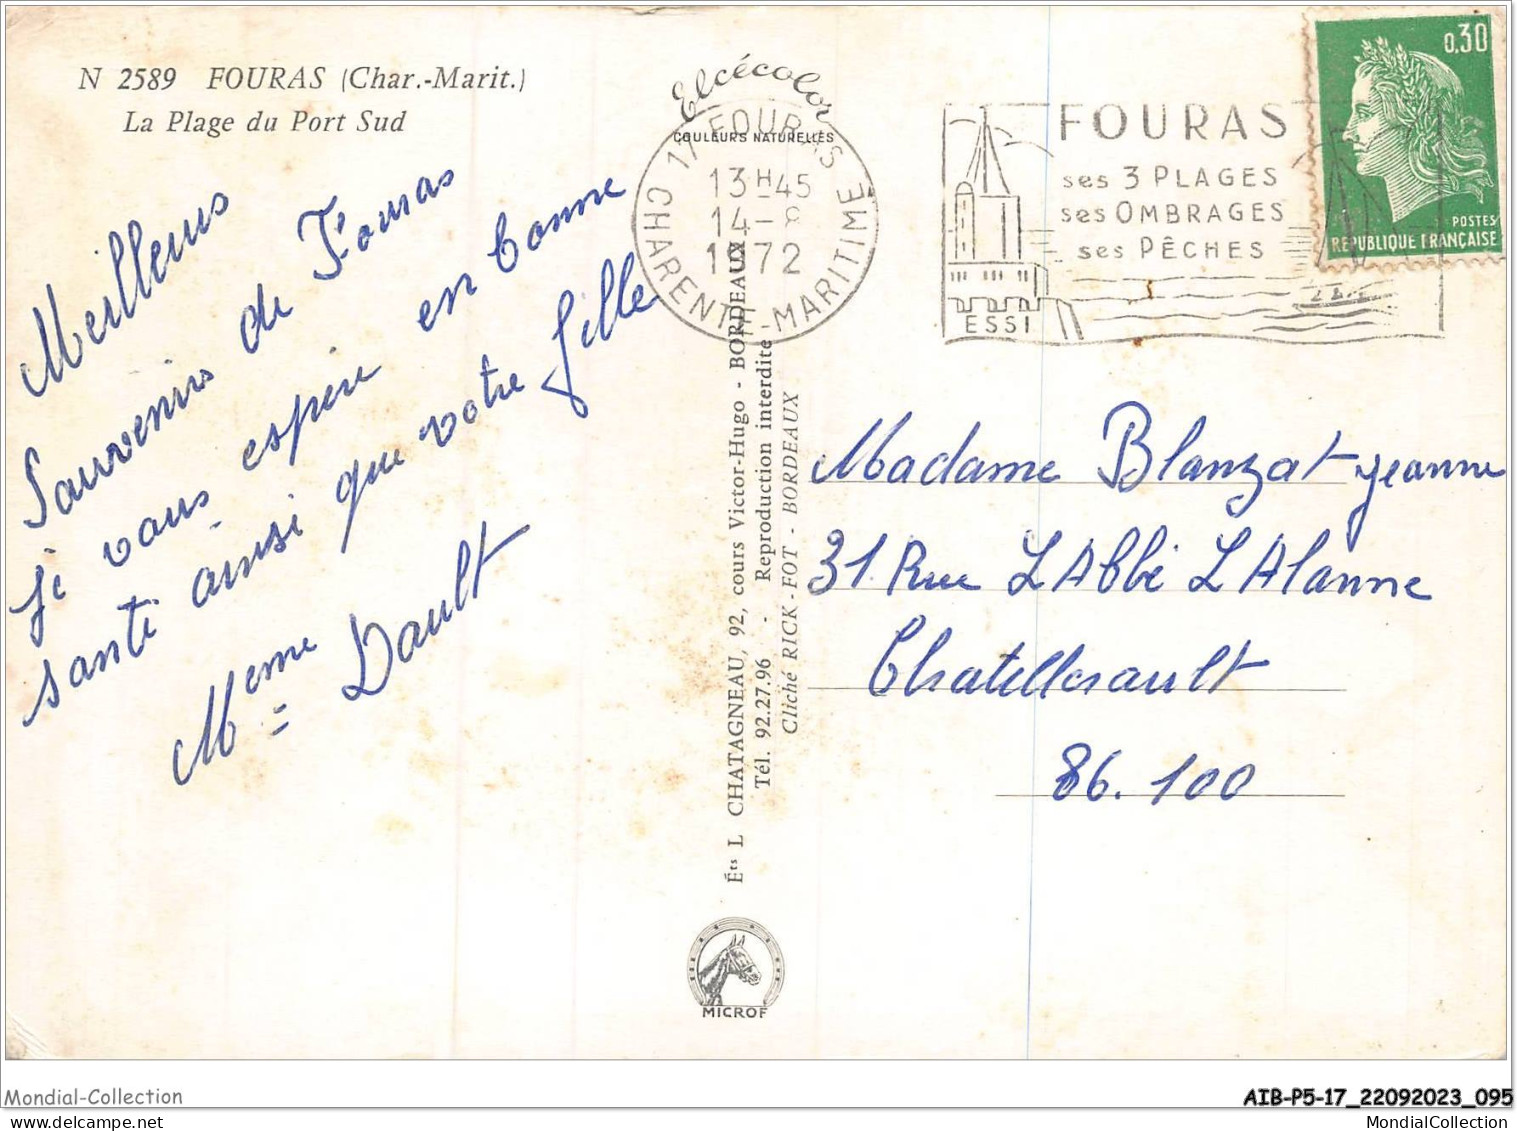 N 2589 FOURAS (Char.-Marit.)
La Plage du Port Sud
Meilleurs
Souvenirs de Fouras
Je vous espère en bonne
santé ainsi que votre fille
Meme Dault
Elcécolor
COULEURS NATURELLES
17 FOURAS
13H45
14-8
1972
CHARENTE-MARITIME
FOURAS
ses 3 PLAGES
ses OMBRAGES
ses PÊCHES
ESSI
0,30
POSTES
RÉPUBLIQUE FRANÇAISE
Madame Blanzat Jeanne
31. Rue L'Abbé LAlanne
Chatellerault
86.100
Éts L CHATAGNEAU, 92, cours Victor-Hugo - BORDEAUX
Tél. 92.27.96 - Reproduction interdite
Cliché RICK-FOT - BORDEAUX
MICROF
Mondial-Collection
AIB-P5-17_22092023_095
AIB
MondialCollection